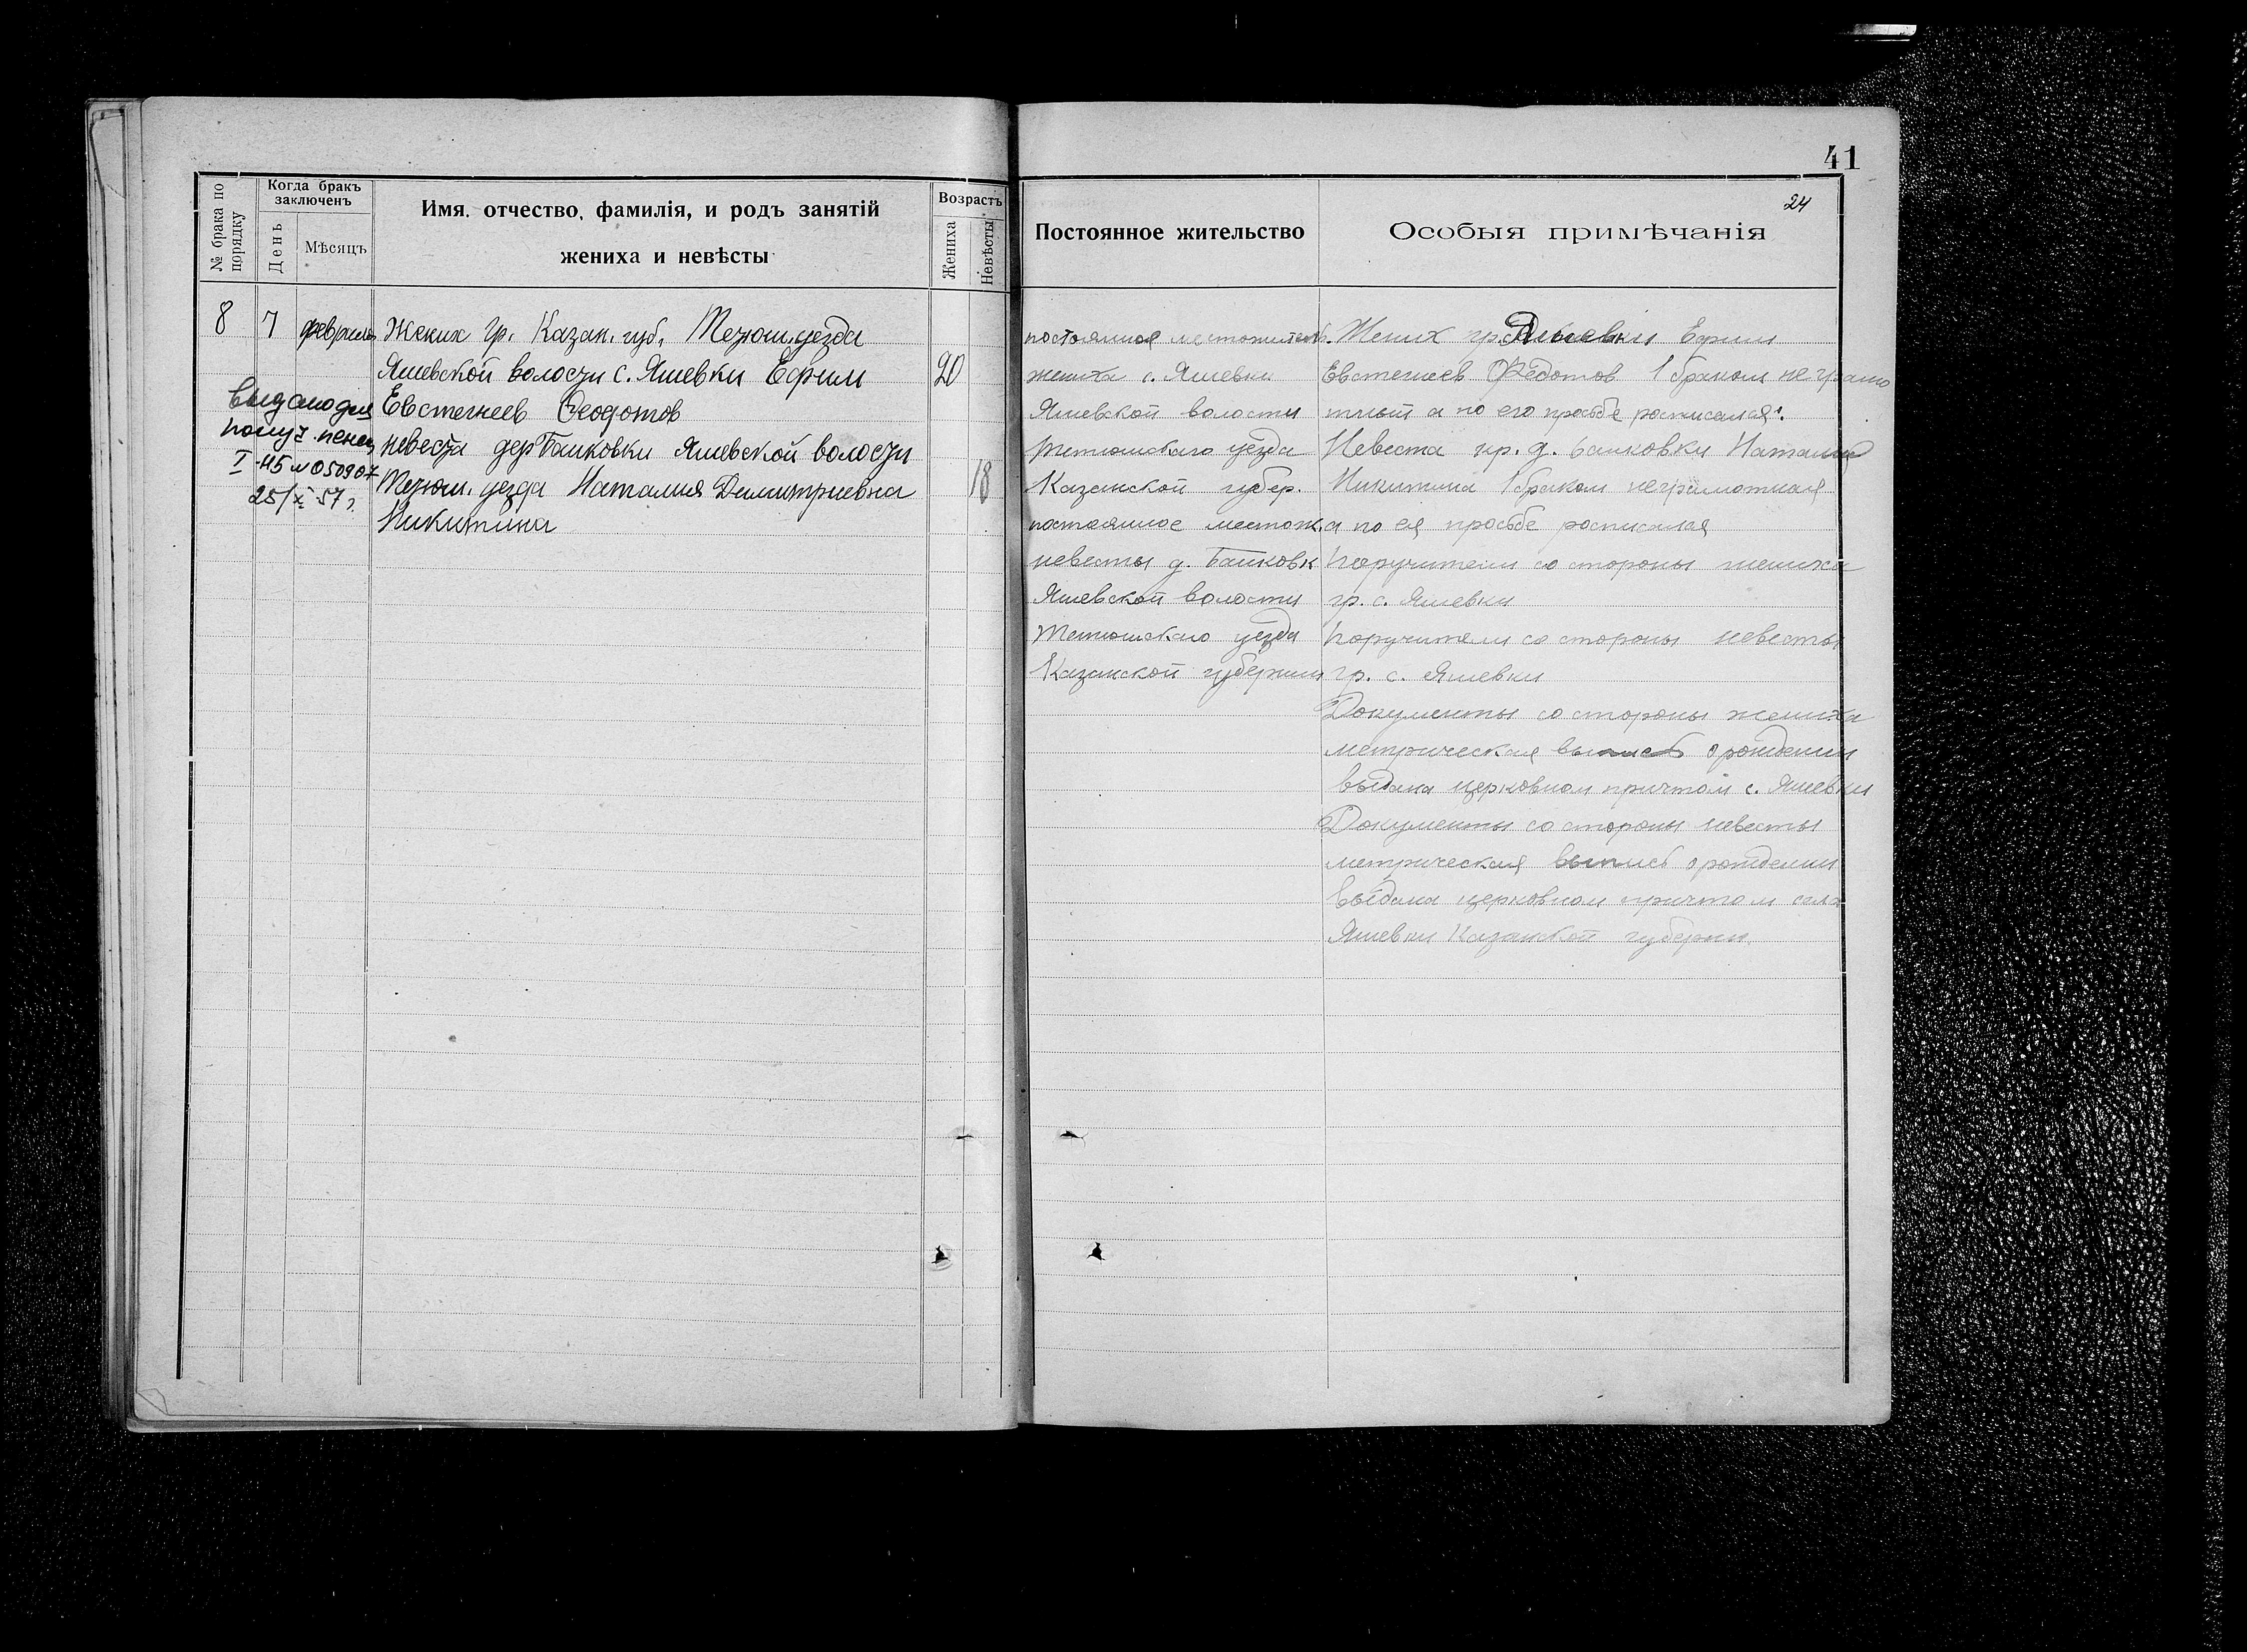 41
24
№ брака по порядку
Когда бракъ заключенъ
День
Мѣсяцъ
Имя, отчество, фамилія, и родъ занятій
жениха и невѣсты
Возрастъ
Жениха
Невѣсты
Постоянное жительство
Особыя примѣчанія
8 7 февраля
Жених гр. Казан. губ. Тетюш. уезда
Яшевской волости с. Яшевки Ефим
20
Евстегнеев Феодотов
невеста дер Башковки Яшевской волости
Тетюш. уезда Наталия Димитриевна
18
Никитина
выдано для
получ. пенс
I-Н5 №050907
25/X 57 г.
постоянное местожитель.
жениха с. Яшевки
Яшевской волости
Тетюшскаго уезда
Казанской губер.
постоянное местож.
невесты д. Башковк
Яшевской волости
Тетюшскаго уезда
Казанской губернии
Жених гр. с. Яшевки Ефим
Евстегнеев Федотов 1 браком неграмо
тный а по его просьбе росписался
Невеста гр. д. Башковки Наталия
Никитина 1 браком неграмотная
а по ея просьбе росписался
Поручители со стороны жениха
гр. с. Яшевки
Поручители со стороны невесты
гр. с. Яшевки
Документы со стороны жениха
метрическая выпись о рождении
выдана церковном причтом с. Яшевки
Документы со стороны невесты
метрическая выпись о рождении
выдана церковном причтом села
Яшевки Казанской губернии.